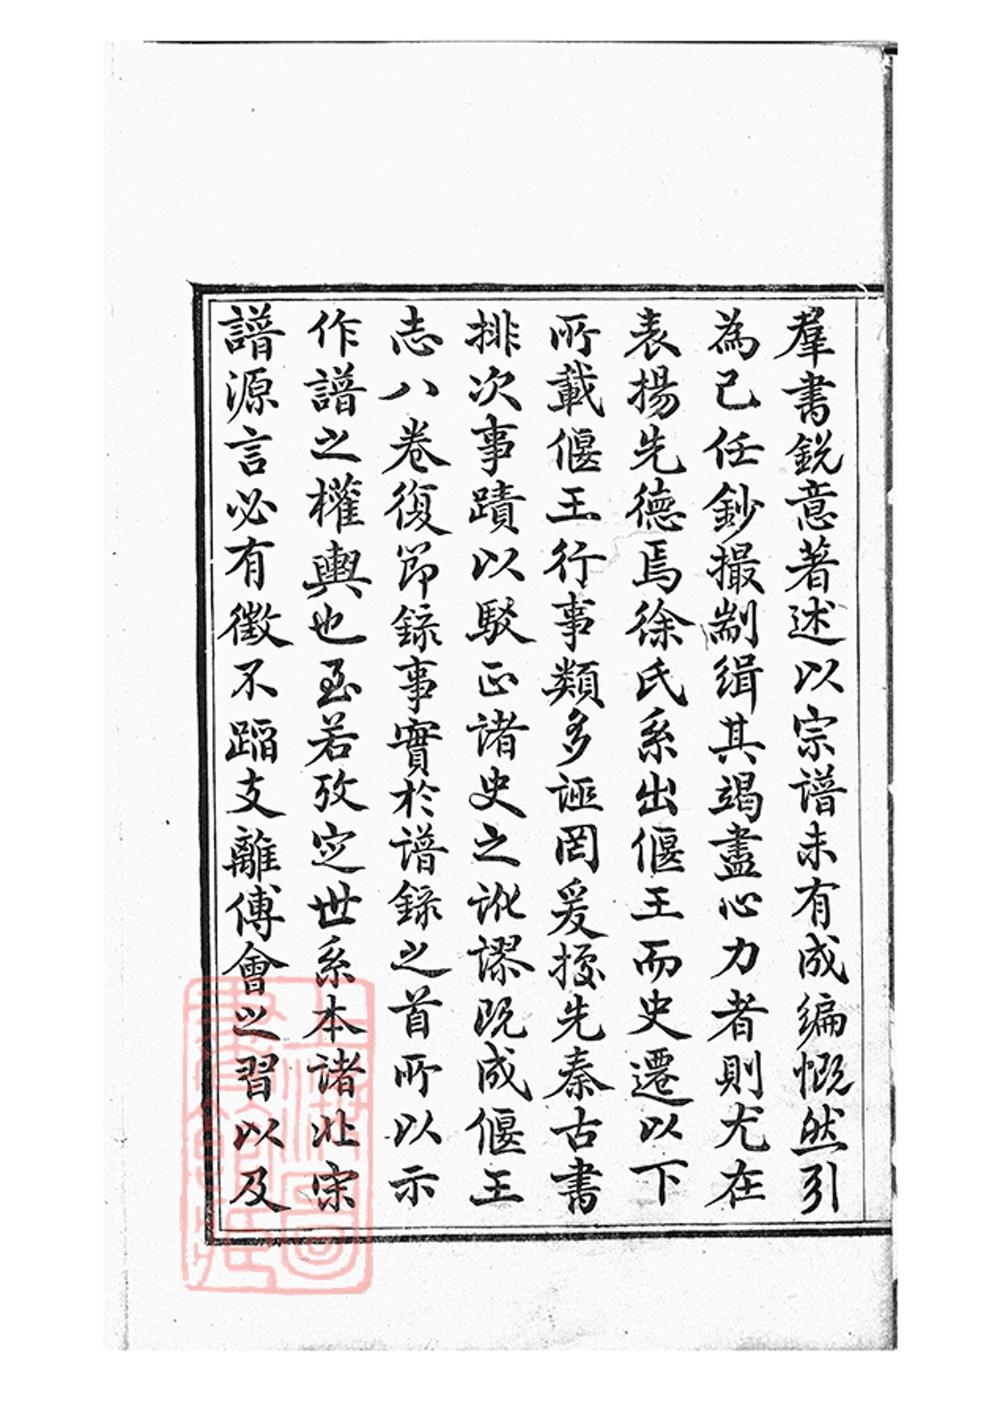 羣書銳意著述以宗譜未有成編慨然引
為己任鈔撮剬緝其竭盡心力者則尤在
表揚先德焉徐氏系出偃王而史遷以下
所載偃王行事類多誣罔爰據先秦古書
排次事蹟以駁正諸史之訛謬既成偃王
志八卷復節錄事實於譜錄之首所以示
作譜之權輿也至若攷定世系本諸北宋
譜源言必有徵不蹈支離傅會之習以及
上海圖
書館藏